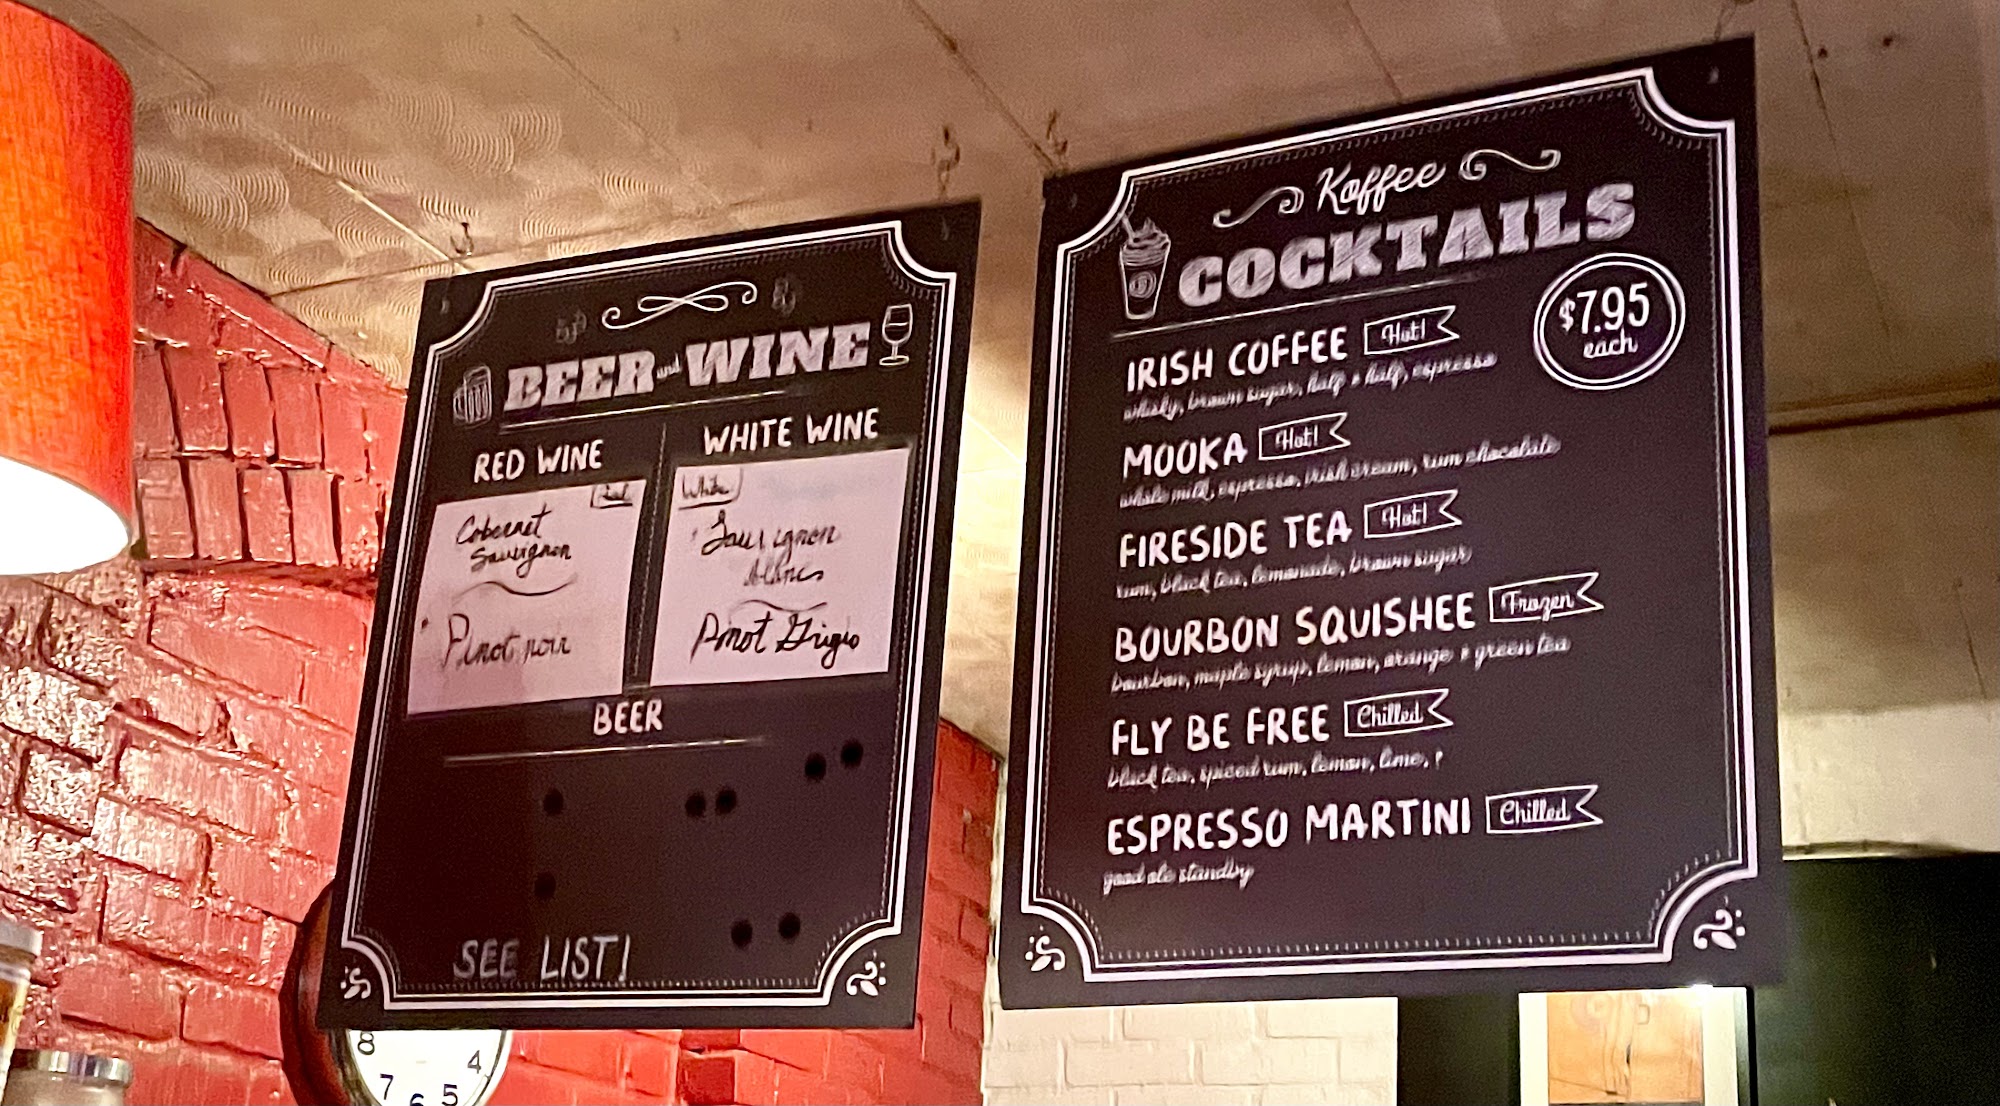 BEER and WINE
RED WINE
Red
Cabernet
Sauvignon
Pinot noir
WHITE WINE
White
Sauvignon
Blanc
Pinot Grigio
BEER
SEE LIST!
Koffee
COCKTAILS
$7.95
each
IRISH COFFEE Hot!
whisky, brown sugar, half & half, espresso
MOOKA Hot!
whole milk, espresso, irish cream, rum chocolate
FIRESIDE TEA Hot!
rum, black tea, lemonade, brown sugar
BOURBON SQUISHEE Frozen
bourbon, maple syrup, lemon, orange & green tea
FLY BE FREE Chilled
black tea, spiced rum, lemon, lime, ?
ESPRESSO MARTINI Chilled
good ole standby
8
7
6
5
4